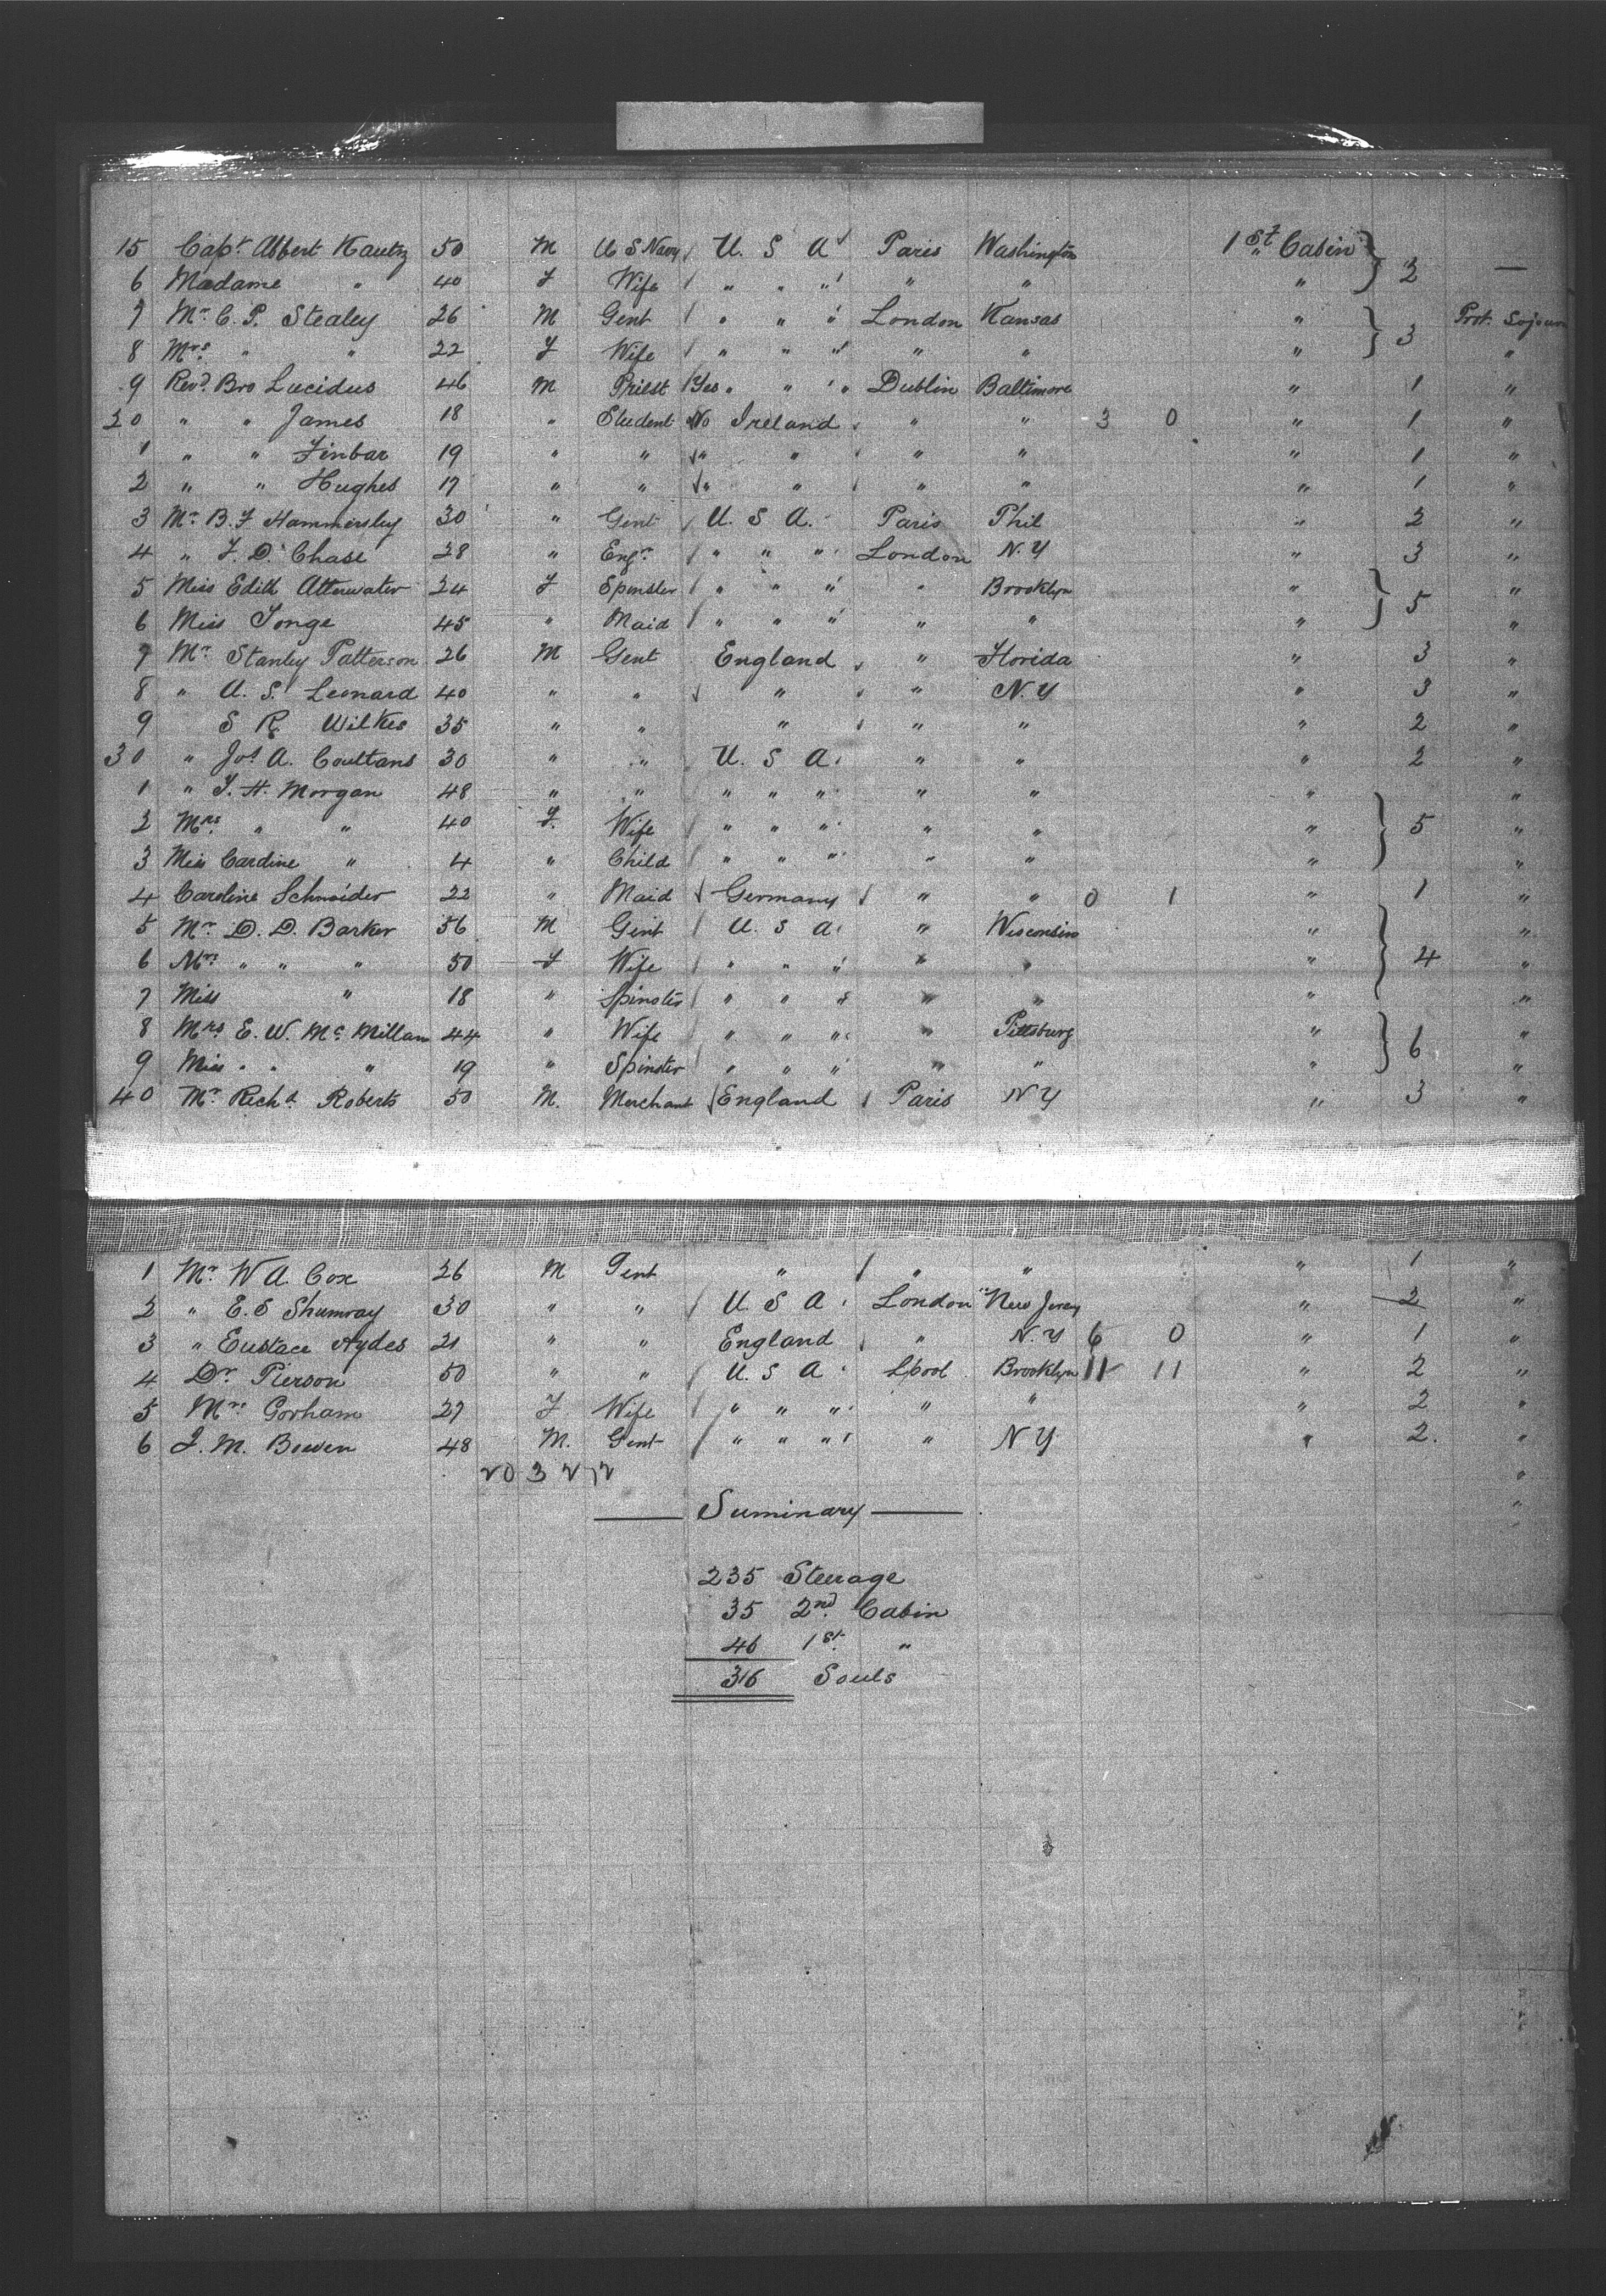 15 Capt Albert Kautz 50 M U S Navy U. S A Paris Washington 1st Cabin 2 —
6 Madame " 40 F Wife " " " " " "
7 Mr. C. P. Stealey 26 M Gent " " " London Kansas " 3 Prot. Sojourn
8 Mrs " " 22 F Wife " " " " " " "
9 Revd. Bro Lucidus 46 M Priest Yes " " " Dublin Baltimore " 1 "
20 " " James 18 " Student No Ireland " " 3 0 " 1 "
1 " " Finbar 19 " " " " " " " 1 "
2 " " Hughes 17 " " " " " " " 1 "
3 Mr. B. F Hammersley 30 " Gent U. S A. Paris Phil " 2 "
4 " F. D. Chase 28 " Engr. " " " London N. Y " 3 "
5 Miss Edith Attenwater 24 F Spinster " " " " Brooklyn " 5 "
6 Miss Tonge 45 " Maid " " " " " " "
7 Mr. Stanley Patterson 26 M Gent England " Florida " 3 "
8 " A. S. Leonard 40 " " " " N. Y " 3 "
9 S R. Wilkes 35 " " " " " " 2 "
30 " Jos A. Coultans 30 " " U. S A. " " " 2 "
1 " T. H. Morgan 48 " " " " " " " " "
2 Mrs. " " 40 F. Wife " " " " " " 5 "
3 Miss Cardine " 4 " Child " " " " " " "
4 Caroline Schneider 22 " Maid Germany " " 0 1 " 1 "
5 Mr. D. D. Barker 56 M Gent U. S A. " Wisconsin " "
6 Mrs " " " 50 F Wife " " " " " " 4 "
7 Miss " 18 " Spinster " " " " " " "
8 Mrs E. W. Mc Millan 44 " Wife " " " " Pittsburg " 6 "
9 Miss " " " 19 " Spinster " " " " " " "
40 Mr. Richd. Roberts 50 M. Merchant England Paris N Y " 3 "
1 Mr. W A. Cox 26 M Gent " " " " 1 "
2 " E. S Shumway 30 " " U. S A. London New Jersey " 2 "
3 " Eustace Aydes 21 " " England " N. Y 6 0 " 1 "
4 Dr. Pierson 50 " " U. S A. Lpool Brooklyn 11 11 " 2 "
5 Mrs. Gorham 27 F Wife " " " " " " 2 "
6 J. M. Bowen 48 M. Gent " " " " N Y " 2. "
"
"
Summary
235 Steerage
35 2nd. Cabin
46 1st. "
316 Souls